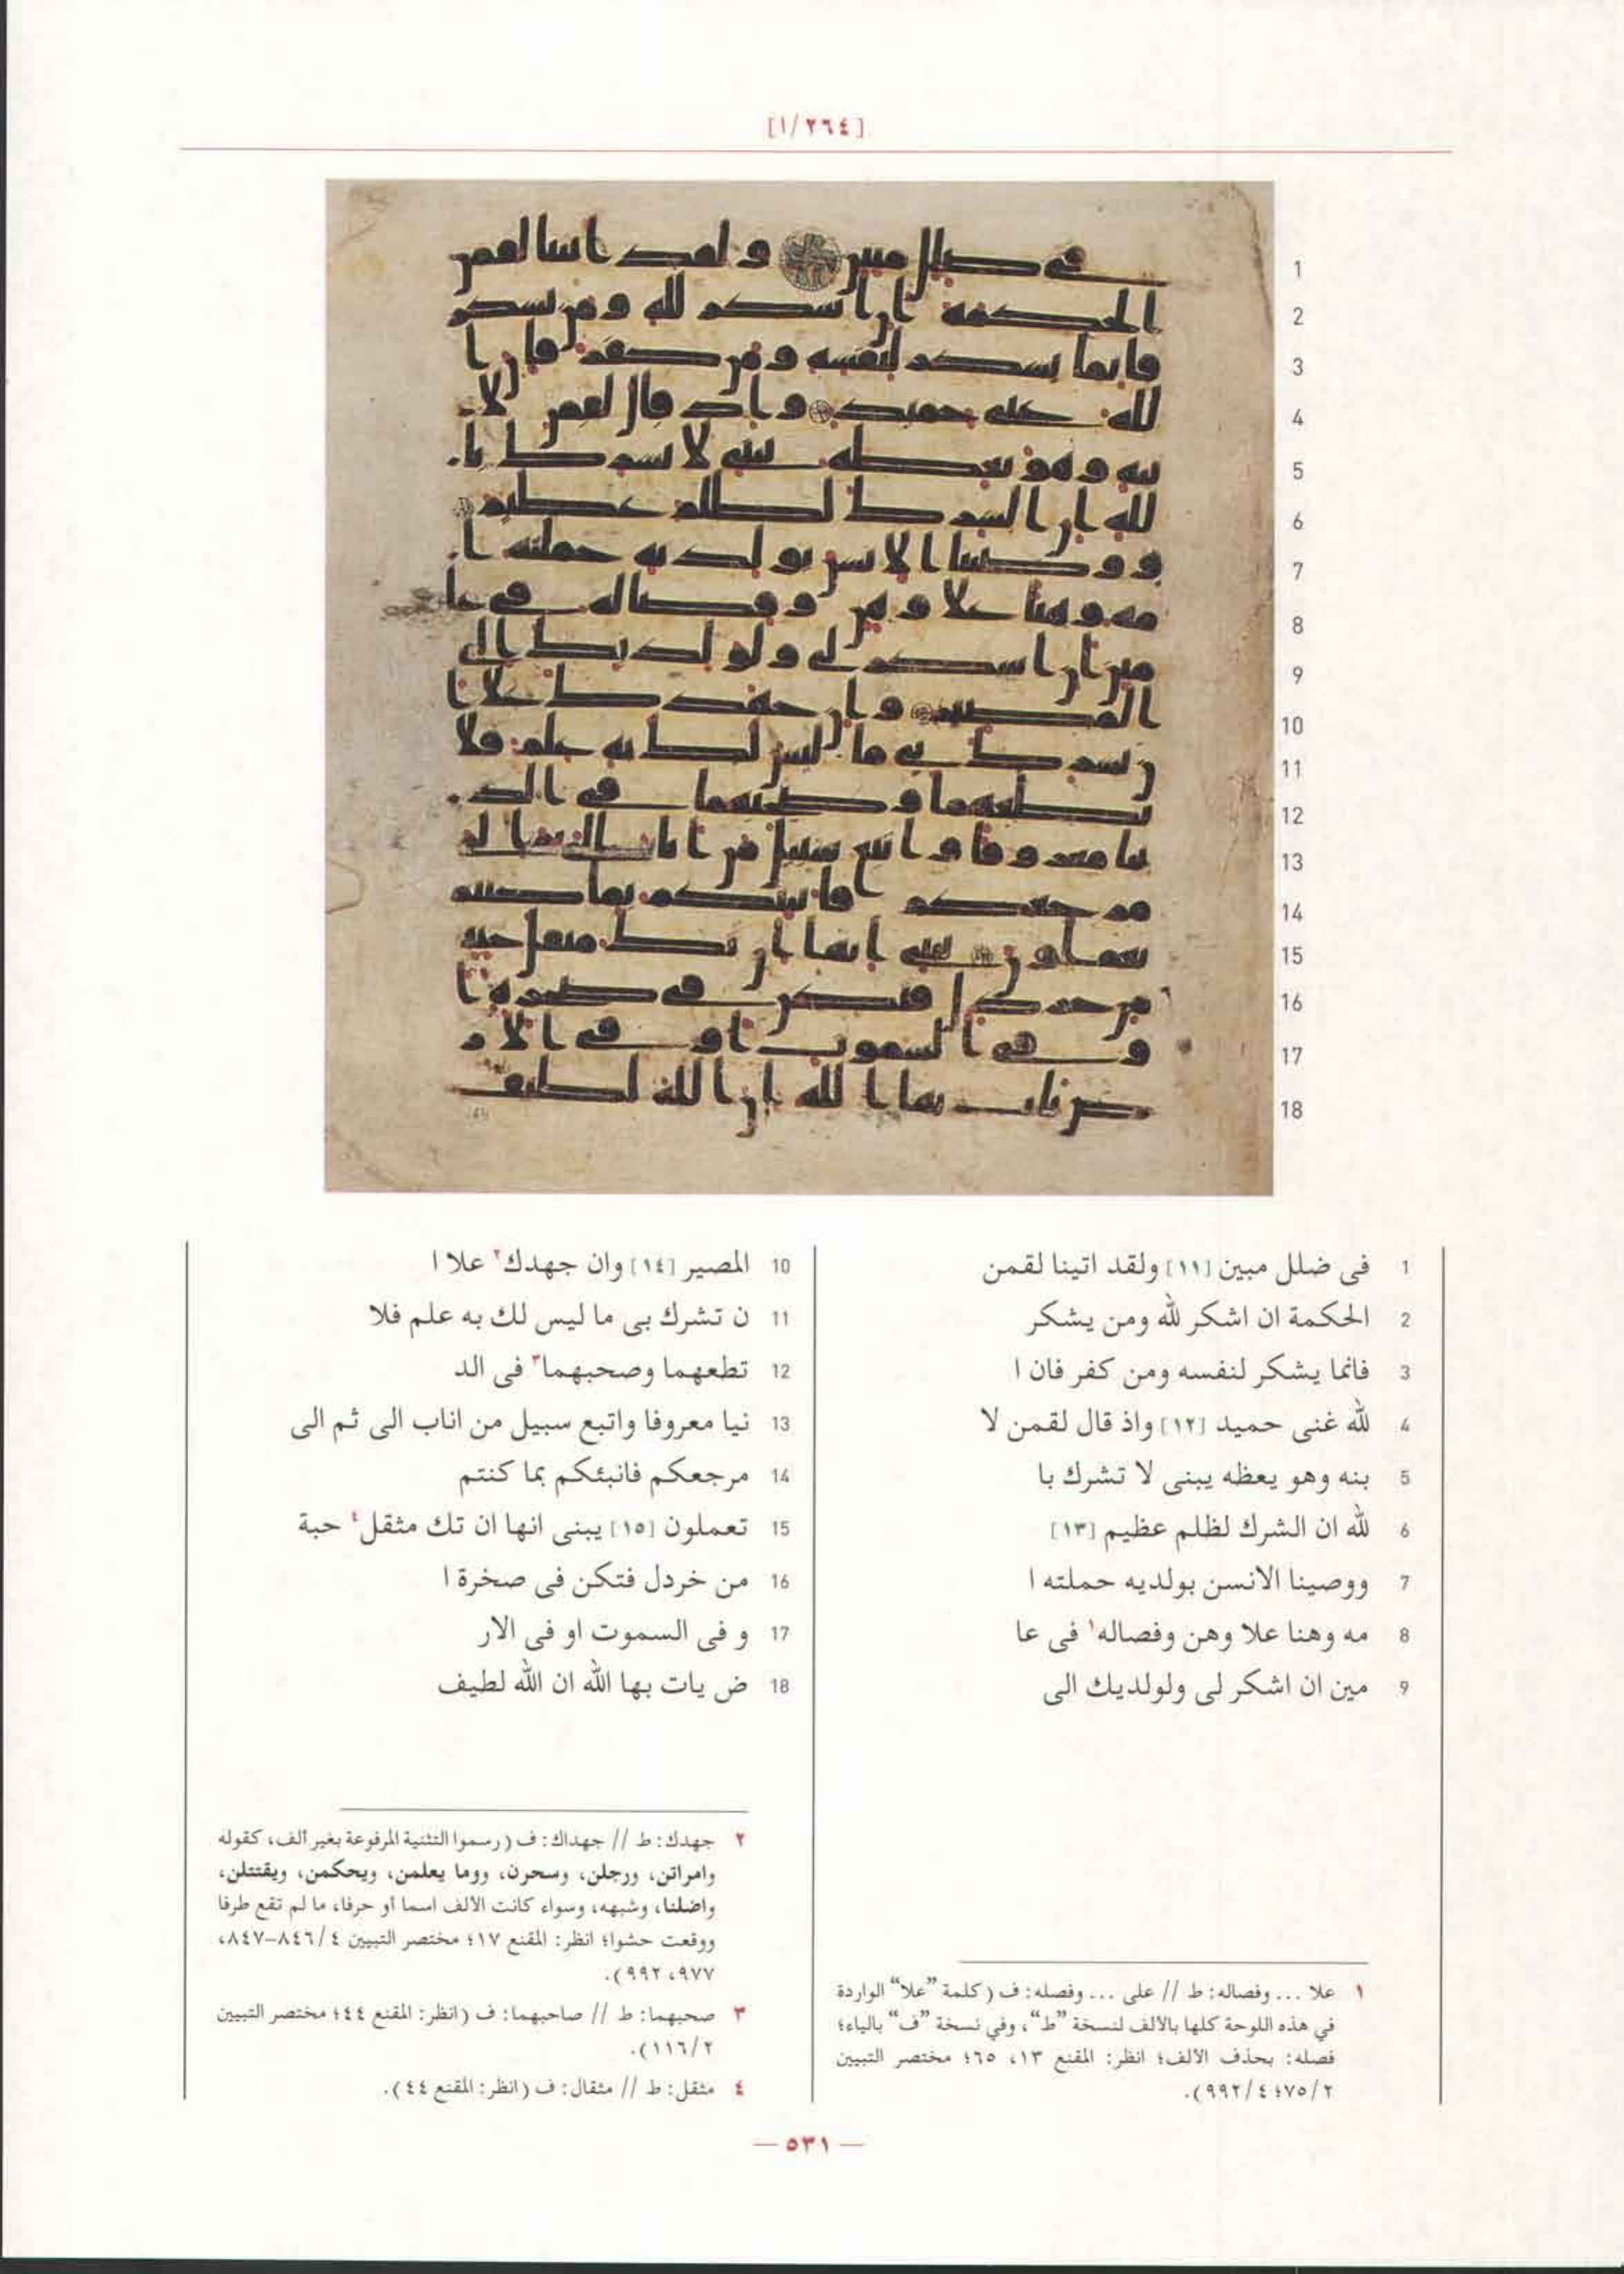 [١/٢٦٤]
1 فى ضلل مبين [١١] ولقد اتينا لقمن
2 الحكمة ان اشكر لله ومن يشكر
3 فانما يشكر لنفسه ومن كفر فان ا
4 لله غنى حميد [١٢] واذ قال لقمن لا
5 بنه وهو يعظه يبنى لا تشرك با
6 لله ان الشرك لظلم عظيم [١٣]
7 ووصينا الانسن بولديه حملته ا
8 مه وهنا علا وهن وفصاله١ فى عا
9 مين ان اشكر لى ولولديك الى
10 المصير [١٤] وان جهدك٢ علا ا
11 ن تشرك بى ما ليس لك به علم فلا
12 تطعهما وصحبهما٣ فى الد
13 نيا معروفا واتبع سبيل من اناب الى ثم الى
14 مرجعكم فانبئكم بما كنتم
15 تعملون [١٥] يبنى انها ان تك مثقل٤ حبة
16 من خردل فتكن فى صخرة ا
17 و فى السموت او فى الار
18 ض يات بها الله ان الله لطيف
١ علا ... وفصاله: ط // على ... وفصله: ف (كلمة ”علا“ الواردة
في هذه اللوحة كلها بالألف لنسخة ”ط“، وفي نسخة ”ف“ بالياء؛
فصله: بحذف الألف؛ انظر: المقنع ١٣، ٦٥؛ مختصر التبيين
٧٥/٢؛ ٩٩٢/٤).
٢ جهدك: ط // جهداك: ف (رسموا التثنية المرفوعة بغير ألف، كقوله
وامراتن، ورجلن، وسحرن، ووما يعلمن، ويحكمن، ويقتتلن،
واضلنا، وشبهه، وسواء كانت الألف اسما أو حرفا، ما لم تقع طرفا
ووقعت حشوا؛ انظر: المقنع ١٧؛ مختصر التبيين ٨٤٦/٤–٨٤٧،
٩٧٧، ٩٩٢).
٣ صحبهما: ط // صاحبهما: ف (انظر: المقنع ٤٤؛ مختصر التبيين
١١٦/٢).
٤ مثقل: ط // مثقال: ف (انظر: المقنع ٤٤).
— ٥٣١ —